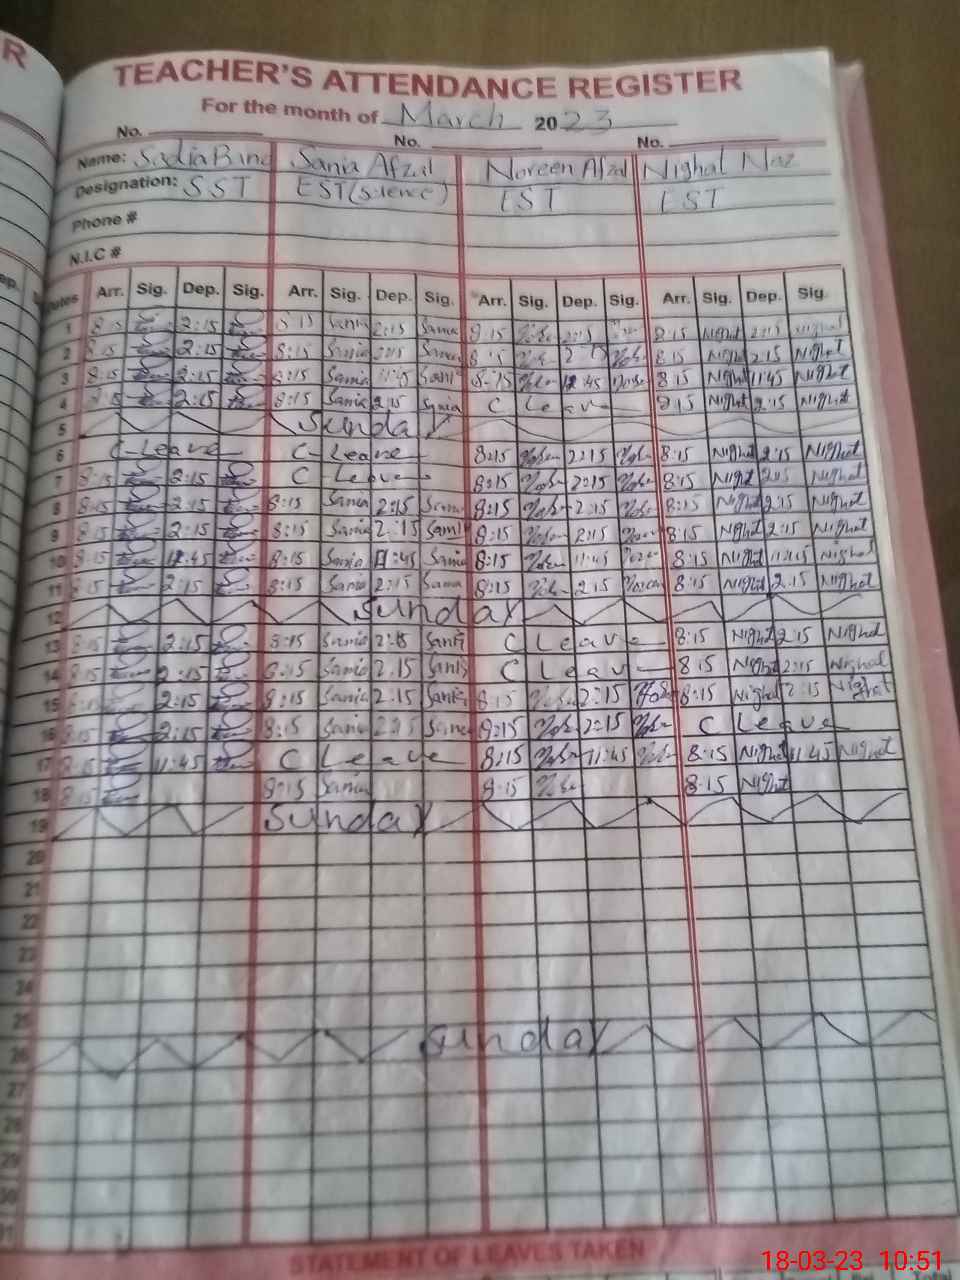 R
TEACHER'S ATTENDANCE REGISTER
For the month of March 2023
No. No. No.
Name: Sadia Sania Afzal Noreen Afzal Nighat Naz
Designation: SST EST(Science) EST EST
Phone #
N.I.C #
Dates Arr. Sig. Dep. Sig. Arr. Sig. Dep. Sig. Arr. Sig. Dep. Sig. Arr. Sig. Dep. Sig.
1 8:15 2:15 8:15 Sania 2:15 Sania 8:15 2:15 8:15 Night 2:15 Night
2 8:15 2:15 8:15 Sania 2:15 Sania 8:15 2:15 8:15 Night 2:15 Night
3 8:15 2:15 8:15 Sania 11:45 Sania 8:15 11:45 8:15 Night 11:45 Night
4 8:15 2:15 8:15 Sania 2:15 Sania C Leave 8:15 Night 2:15 Night
5 Sunday
6 C-Leave C-Leave 8:15 2:15 8:15 Night 2:15 Night
7 8:15 2:15 C Leave 8:15 2:15 8:15 Night 2:15 Night
8 8:15 2:15 8:15 Sania 2:15 Sania 8:15 2:15 8:15 Night 2:15 Night
9 8:15 2:15 8:15 Sania 2:15 Sania 8:15 2:15 8:15 Night 2:15 Night
10 8:15 11:45 8:15 Sania 11:45 Sania 8:15 11:45 8:15 Night 11:45 Night
11 8:15 2:15 8:15 Sania 2:15 Sania 8:15 2:15 8:15 Night 2:15 Night
12 Sunday
13 8:15 2:15 8:15 Sania 2:15 Sania C Leave 8:15 Night 2:15 Night
14 8:15 2:15 8:15 Sania 2:15 Sania C Leave 8:15 Night 2:15 Night
15 8:15 2:15 8:15 Sania 2:15 Sania 8:15 2:15 8:15 Night 2:15 Night
16 8:15 2:15 8:15 Sania 2:15 Sania 8:15 2:15 C Leave
17 8:15 11:45 C Leave 8:15 11:45 8:15 Night 11:45 Night
18 8:15 8:15 Sania 8:15 8:15 Night
19 Sunday
20
21
22
23
24
25
26 Sunday
27
28
29
30
31
STATEMENT OF LEAVES TAKEN
18-03-23 10:51